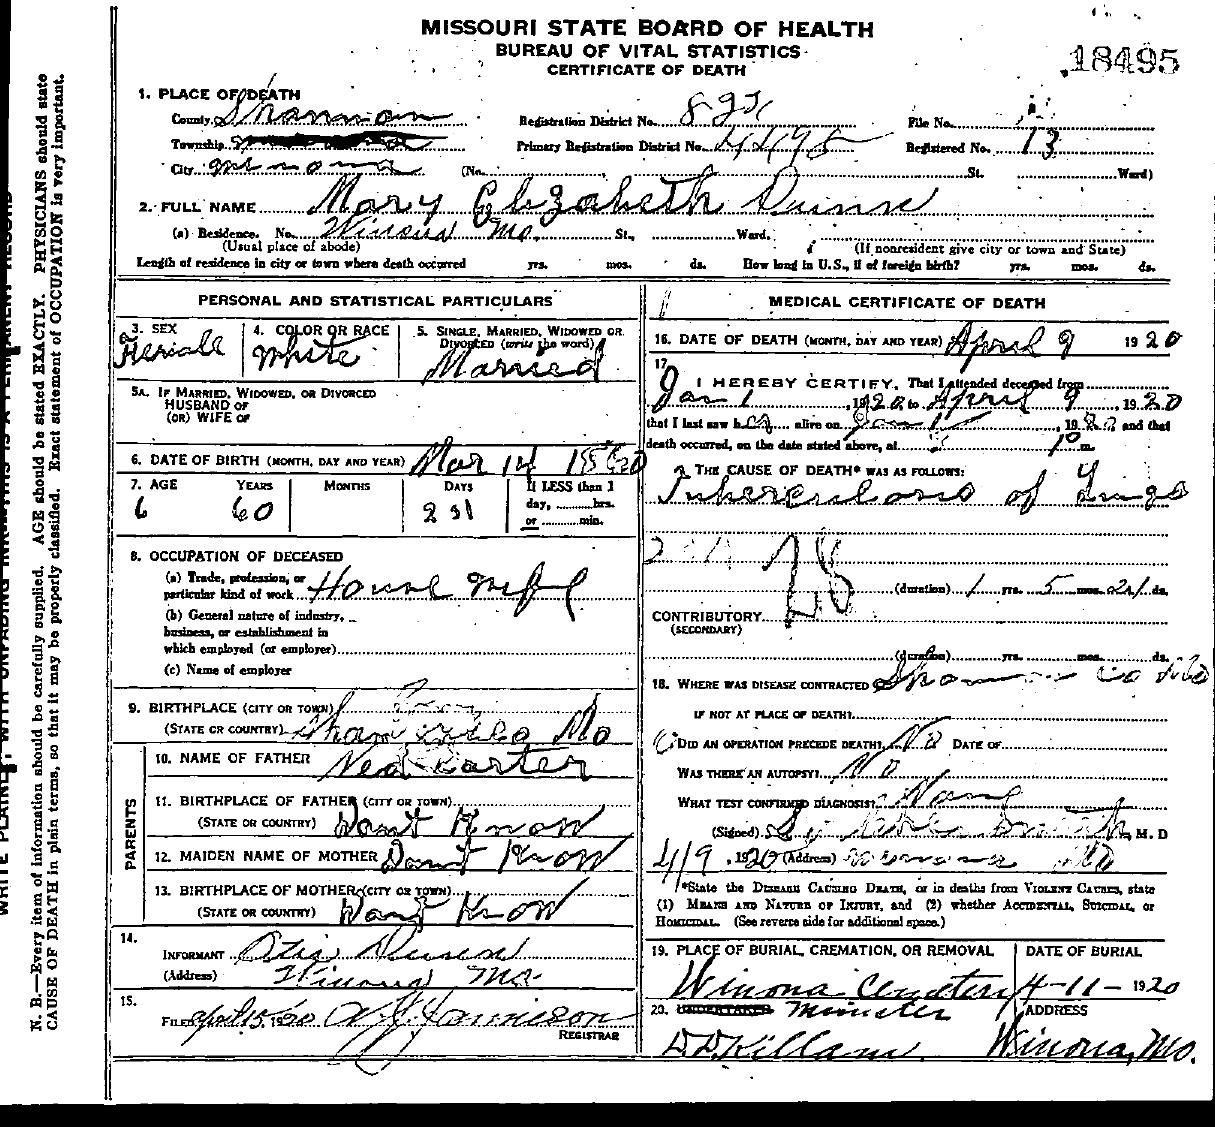 MISSOURI STATE BOARD OF HEALTH
BUREAU OF VITAL STATISTICS
CERTIFICATE OF DEATH
18495
1. PLACE OF DEATH
County Shannon Registration District No. File No.
Township Primary Registration District No. 4495 Registered No. 13
City Winona (No. St. Ward)
2. FULL NAME Mary Elizabeth Dunn
(a) Residence. No. Winona Mo. St., Ward.
(Usual place of abode) (If nonresident give city or town and State)
Length of residence in city or town where death occurred yrs. mos. ds. How long in U.S., if of foreign birth? yrs. mos. ds.
PERSONAL AND STATISTICAL PARTICULARS
3. SEX 4. COLOR OR RACE 5. SINGLE, MARRIED, WIDOWED OR DIVORCED (write the word)
Female White Married
5A. IF MARRIED, WIDOWED, OR DIVORCED
HUSBAND OF
(OR) WIFE OF
6. DATE OF BIRTH (MONTH, DAY AND YEAR) Mar 14 1860
7. AGE YEARS MONTHS DAYS If LESS than 1
day, hrs.
or min.
6 60
8. OCCUPATION OF DECEASED
(a) Trade, profession, or
particular kind of work House Wife
(b) General nature of industry,
business, or establishment in
which employed (or employer)
(c) Name of employer
9. BIRTHPLACE (CITY OR TOWN)
(STATE OR COUNTRY) Mo
PARENTS
10. NAME OF FATHER Ned Carter
11. BIRTHPLACE OF FATHER (CITY OR TOWN)
(STATE OR COUNTRY) Dont Know
12. MAIDEN NAME OF MOTHER Dont Know
13. BIRTHPLACE OF MOTHER (CITY OR TOWN)
(STATE OR COUNTRY) Dont Know
14.
INFORMANT Otis Dunn
(Address) Winona Mo.
15.
FILED April 15, 1920
REGISTRAR
MEDICAL CERTIFICATE OF DEATH
16. DATE OF DEATH (MONTH, DAY AND YEAR) April 9 1920
17
I HEREBY CERTIFY, That I attended deceased from
Jan 1, 1920 to April 9, 1920
that I last saw her alive on 19 and that
death occurred, on the date stated above, at m.
THE CAUSE OF DEATH* WAS AS FOLLOWS:
Tuberculosis of Lungs
28
(duration) 1 yrs. 5 mos. 21 ds.
CONTRIBUTORY
(SECONDARY)
(duration) yrs. mos. ds.
18. WHERE WAS DISEASE CONTRACTED Shannon Co Mo
IF NOT AT PLACE OF DEATH?
DID AN OPERATION PRECEDE DEATH? No DATE OF
WAS THERE AN AUTOPSY? No
WHAT TEST CONFIRMED DIAGNOSIS?
(Signed) M. D
4/9, 1920 (Address) Winona Mo
*State the DISEASE CAUSING DEATH, or in deaths from VIOLENT CAUSES, state
(1) MEANS AND NATURE OF INJURY, and (2) whether ACCIDENTAL, SUICIDAL, or
HOMICIDAL. (See reverse side for additional space.)
19. PLACE OF BURIAL, CREMATION, OR REMOVAL DATE OF BURIAL
Winona Cemetery 4-11-1920
20. UNDERTAKER Minister ADDRESS
D.D. Killam Winona, Mo.
N. B.—Every item of information should be carefully supplied. AGE should be stated EXACTLY. PHYSICIANS should state
CAUSE OF DEATH in plain terms, so that it may be properly classified. Exact statement of OCCUPATION is very important.